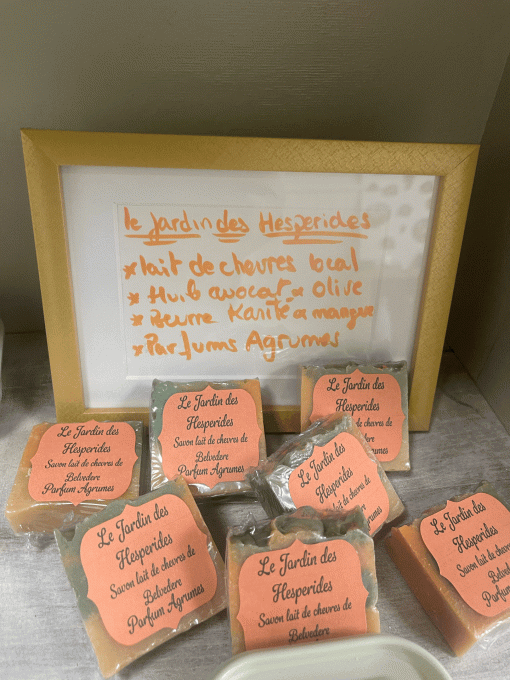 le jardin des Hesperides
* lait de chevres local
* Huile avocat & Olive
* Beurre Karité & mangue
* Parfums Agrumes
Le Jardin des
Hesperides
Savon lait de chevres de
Belvedere
Parfum Agrumes
Le Jardin des
Hesperides
Savon lait de chevres de
Belvedere
Parfum Agrumes
Le Jardin des
Hesperides
lait de chevres de
Belvedere
Agrumes
Le Jardin des
Hesperides
Savon lait de chevres de
Belvedere
Parfum Agrumes
Le Jardin des
Hesperides
Savon lait de chevres de
Belvedere
Parfum Agrumes
Le Jardin des
Hesperides
Savon lait de chevres de
Belvedere
Le Jardin des
Hesperides
Savon lait de
Parfum